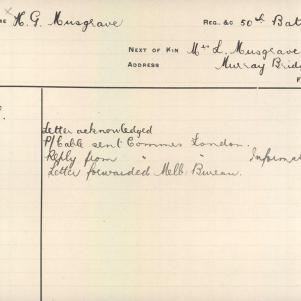 H. G. Musgrave
REG. &C 50th Bat
NEXT OF KIN Mrs L. Musgrave
ADDRESS Murray Brid
Letter acknowledged
P/Cable sent Commrs London.
Reply from " " Informat
Letter forwarded Melb. Bureau.